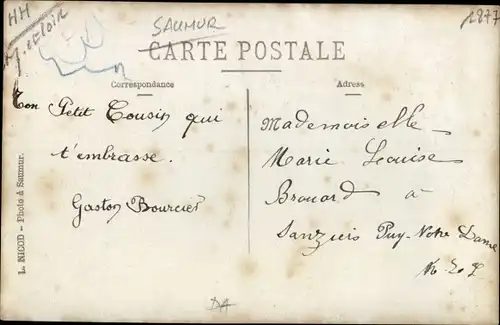 HH
M. et Loir
SAUMUR
1877
CARTE POSTALE
Correspondance
Adresse
Ton Petit Cousin qui
t'embrasse.
Gaston Bourcier
Mademoiselle
Marie Louise
Brouard à
Sanziers Puy-Notre Dame
M. & L
L. NICOD — Photo à Saumur.